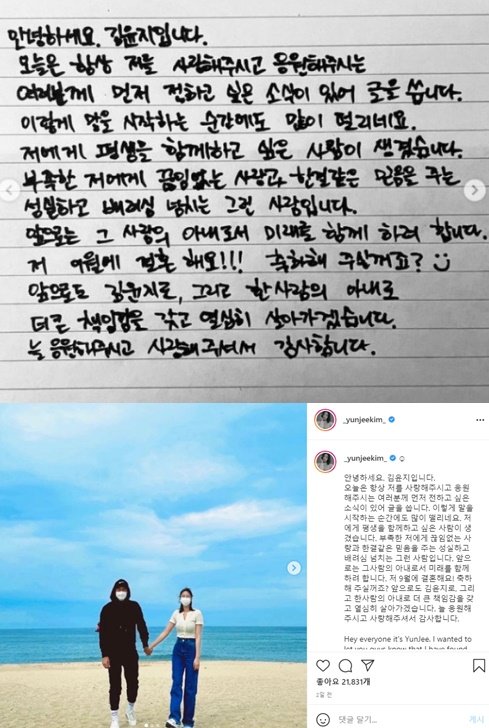 안녕하세요. 김윤지입니다.
오늘은 항상 저를 사랑해주시고 응원해주시는
여러분께 먼저 전하고 싶은 소식이 있어 글을 씁니다.
이렇게 말을 시작하는 순간에도 많이 떨리네요.
저에게 평생을 함께하고 싶은 사람이 생겼습니다.
부족한 저에게 끊임없는 사랑과 한결같은 믿음을 주는
성실하고 배려심 넘치는 그런 사람입니다.
앞으로는 그 사람의 아내로서 미래를 함께 하려 합니다.
저 9월에 결혼 해요!!! 축하해 주실꺼죠? :)
앞으로도 김윤지로, 그리고 한사람의 아내로
더 큰 책임감을 갖고 열심히 살아가겠습니다.
늘 응원해주시고 사랑해주셔서 감사합니다.
_yunjeekim_
_yunjeekim_
안녕하세요. 김윤지입니다.
오늘은 항상 저를 사랑해주시고 응원
해주시는 여러분께 먼저 전하고 싶은
소식이 있어 글을 씁니다. 이렇게 말을
시작하는 순간에도 많이 떨리네요. 저
에게 평생을 함께하고 싶은 사람이 생
겼습니다. 부족한 저에게 끊임없는 사
랑과 한결같은 믿음을 주는 성실하고
배려심 넘치는 그런 사람입니다. 앞으
로는 그사람의 아내로서 미래를 함께
하려 합니다. 저 9월에 결혼해요! 축하
해 주실꺼죠? 앞으로도 김윤지로, 그리
고 한사람의 아내로 더 큰 책임감을 갖
고 열심히 살아가겠습니다. 늘 응원해
주시고 사랑해주셔서 감사합니다.
Hey everyone it's YunJee. I wanted to
let you guys know that I have found
좋아요 21,831개
2일 전
댓글 달기...
게시